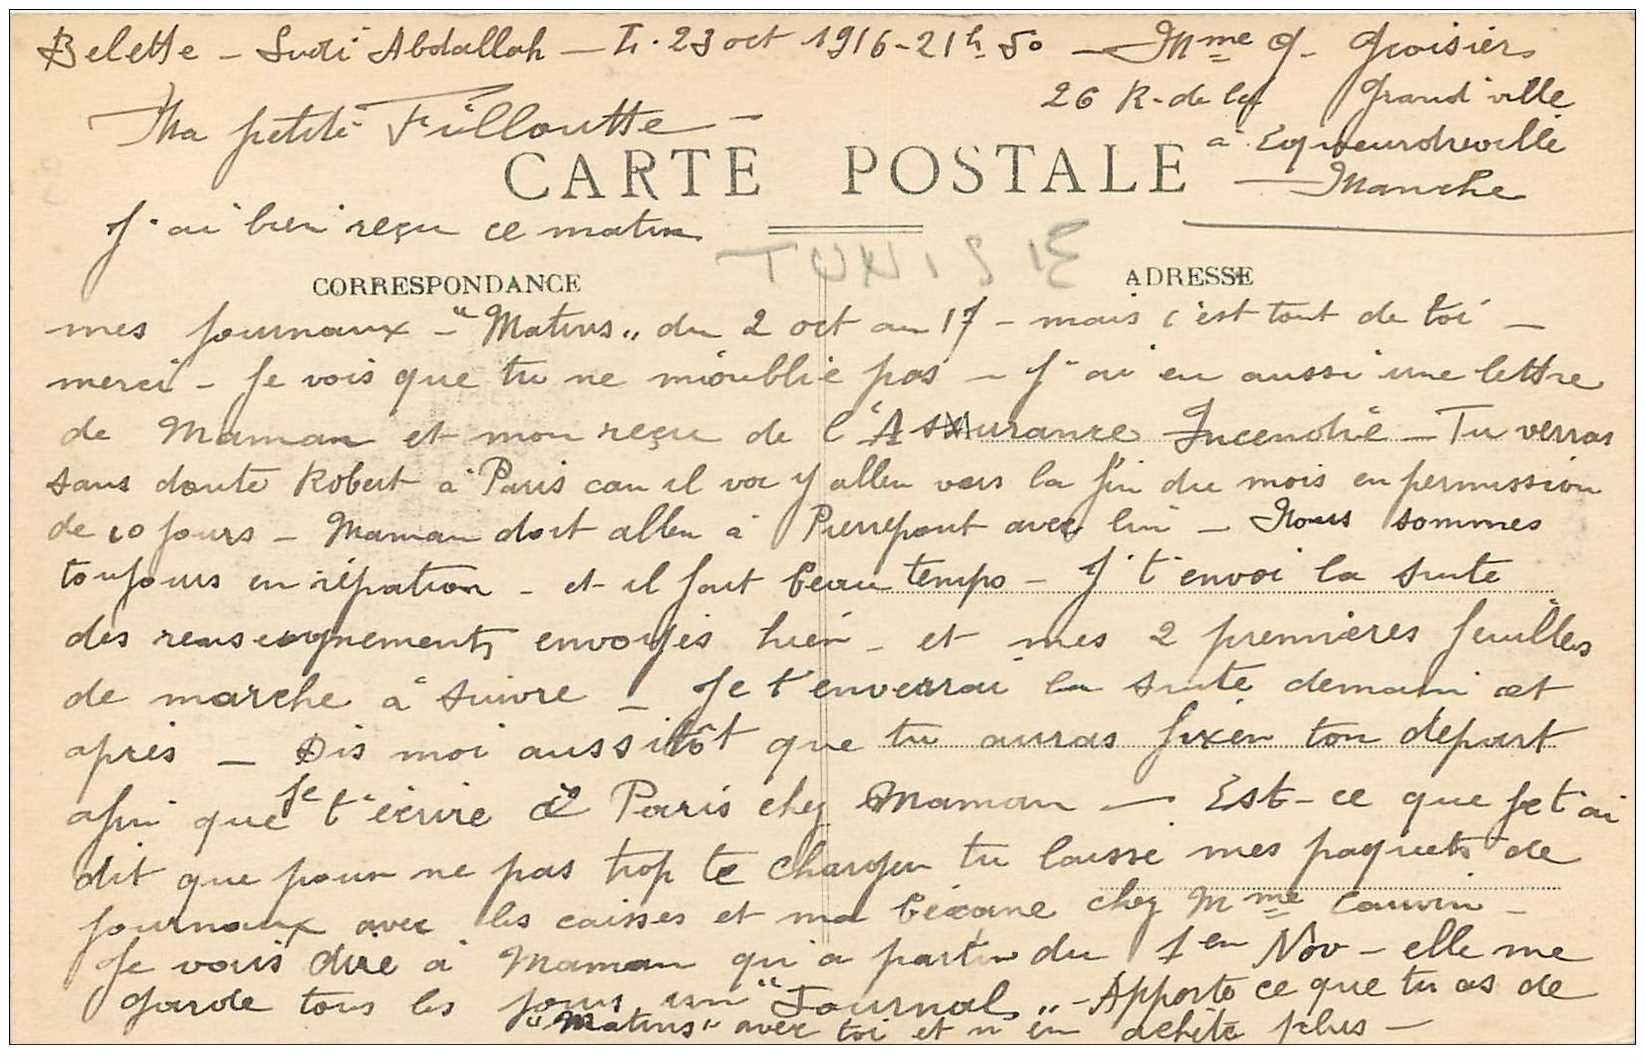 Belette - Sidi Abdallah - L. 23 oct 1916 - 21h 50 - Mme G. Groisier
26 R. de la Grand ville
à Eqveurdreville
Manche
Ma petite Filloutte -
CARTE POSTALE
J'ai bien reçu ce matin
TUNISIE
CORRESPONDANCE ADRESSE
mes journaux - "Matins" du 2 oct au 17 - mais c'est tout de toi -
merci - Je vois que tu ne m'oublie pas - J'ai eu aussi une lettre
de Maman et mon reçu de l'Assurance Incendie - Tu verras
sans doute Robert à Paris car il va y aller vers la fin du mois en permission
de 10 jours - Maman doit aller à Pierrepont avec lui - Nous sommes
toujours en répation - et il fait beau temps - J't'envoi la suite
des renseignements envoyés hier - et mes 2 premières feuilles
de marche à suivre - Je t'enverrai la suite demain et
après - Dis moi aussitôt que tu auras fixer ton départ
afin que je t'écrive à Paris chez Maman - Est-ce que je t'ai
dit que pour ne pas trop te charger tu laisse mes paquets de
journaux avec les caisses et ma bécane chez Mme Cauvin -
Je vais dire à Maman qu'a partir du 1er Nov - elle me
garde tous les jours un "Journal" - Apporte ce que tu as de
"Matins" avec toi et n'en achète plus -